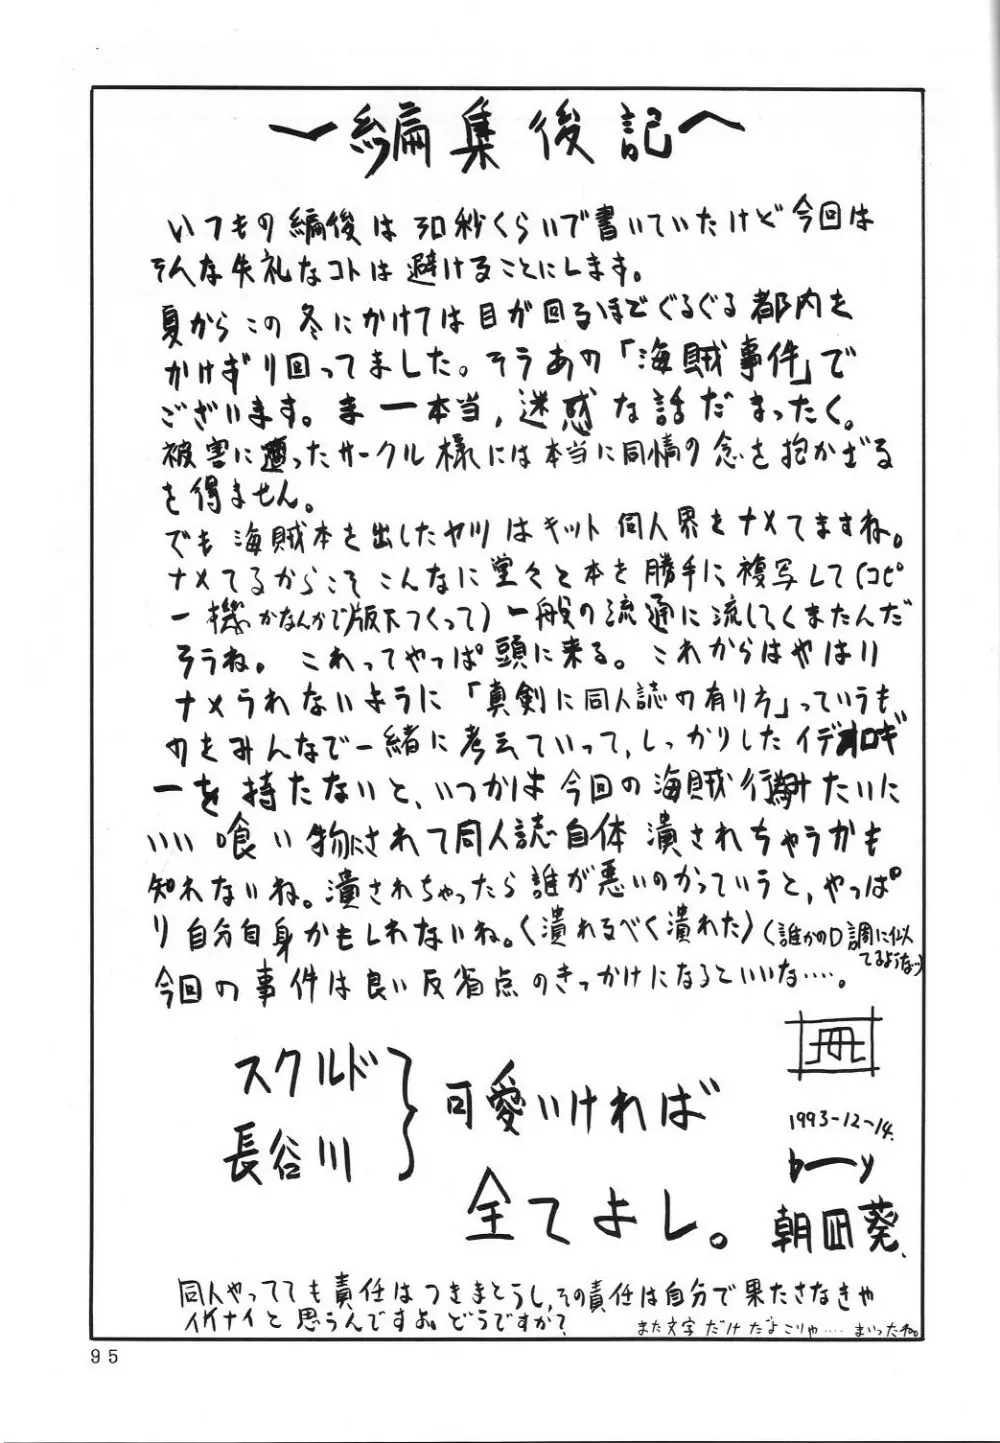 〜編集後記〜
いつもの編後は30秒くらいで書いていたけど今回は
そんな失礼なコトは避けることにします。
夏からこの冬にかけては目が回るほどぐるぐる都内を
かけずり回ってました。そうあの「海賊事件」で
ございます。まー本当,迷惑な話だまったく。
被害に遭ったサークル様には本当に同情の念を抱かざる
を得ません。
でも海賊本を出したヤツはキット同人界をナメてますね。
ナメてるからこそこんなに堂々と本を勝手に複写して(コピ
ー機かなんかで版下つくって)一般の流通に流してくまたんだ
そうね。これってやっぱ頭に来る。これからはやはり
ナメられないように「真剣に同人誌の有り方」っていうも
のをみんなで一緒に考えていって,しっかりしたイデオロギ
ーを持たないと、いつかは今回の海賊行為みたいに
いい喰い物にされて同人誌自体潰されちゃうかも
知れないね。潰されちゃったら誰が悪いのかっていうと、やっぱ
り自分自身かもしれないね。〈潰れるべく潰れた〉(誰かのD調に似
てるようなっ)
今回の事件は良い反省点のきっかけになるといいな……。
スクルド
長谷川
可愛いければ
全てよし。
1993-12-14.
by
朝凪葵.
同人やってても責任はつきまとうし,その責任は自分で果たさなきゃ
イケナイと思うんですよ。どうですか?
また文字だけだよこりゃ……まいったね。
95